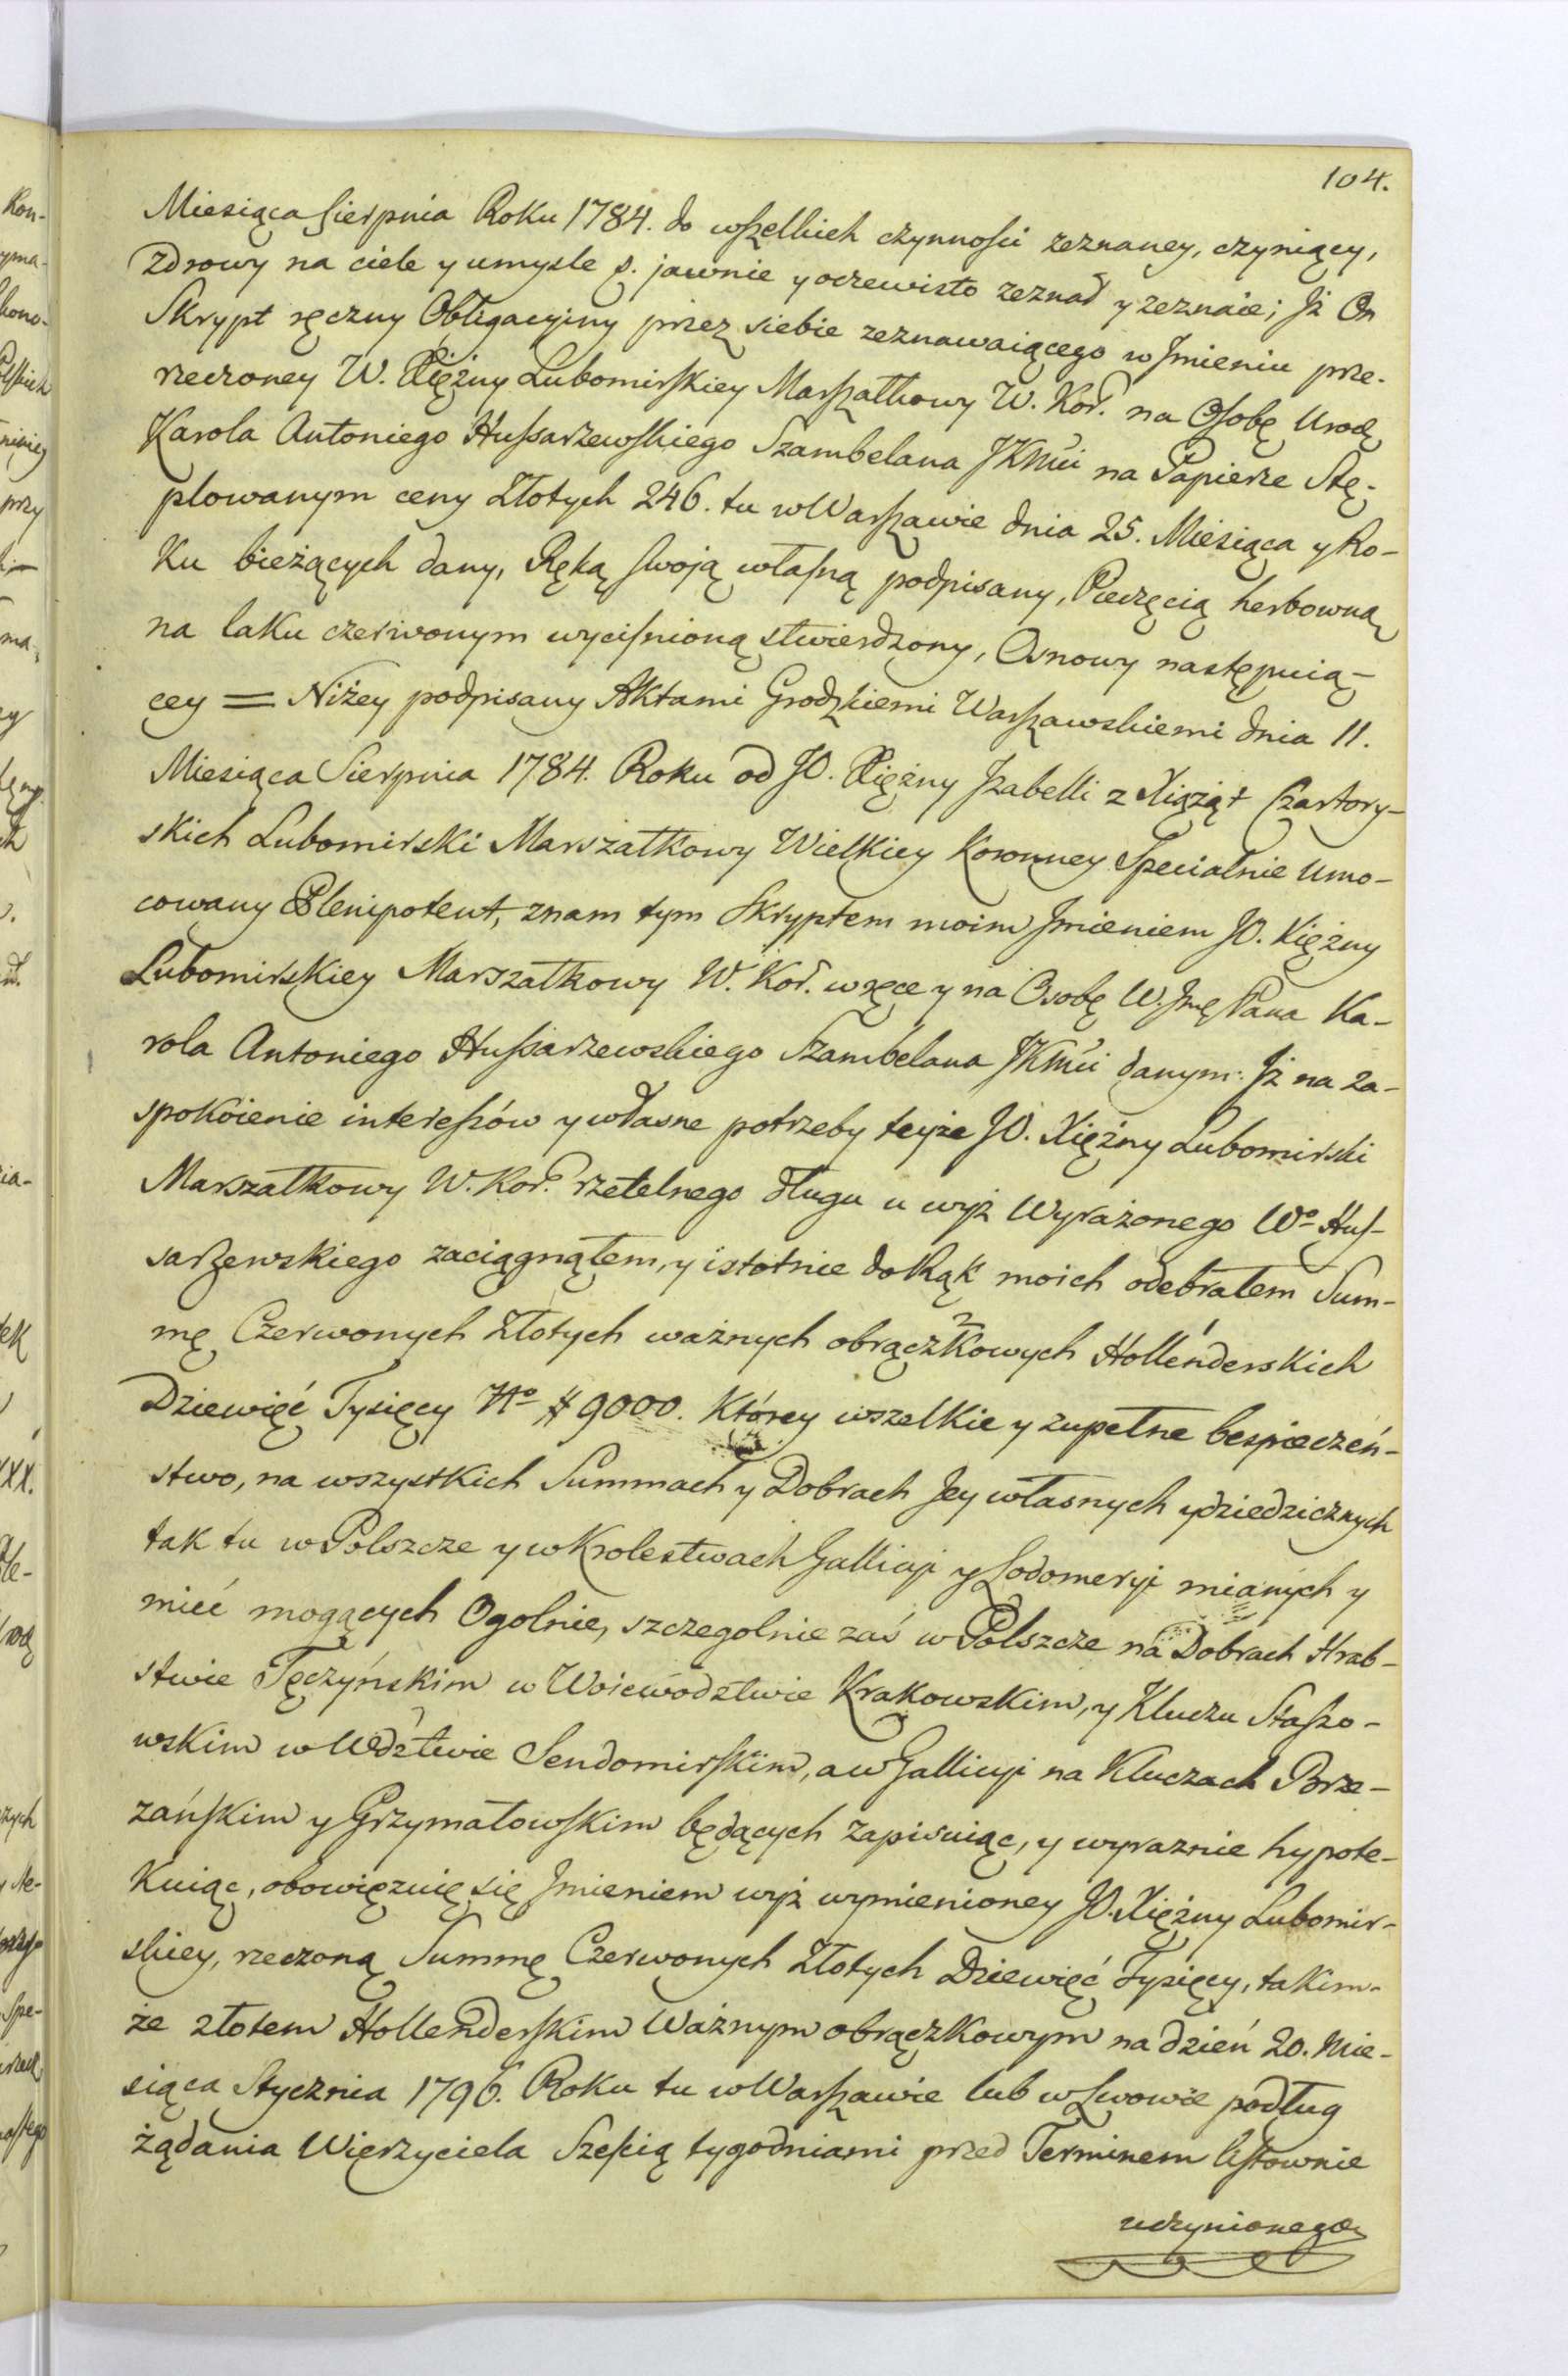 104.
Miesiąca Sierpnia Roku 1784. do wszelkich czynności zeznaney, czyniący,
Zdrowy na ciele y umysle p. jawnie y oczewisto zeznał y zeznaie; Jż On
Skrypt ręczny Obligacyiny przez siebie zeznawaiącego w Jmieniu prze-
rzeczoney W. Xiężny Lubomirskiey Marszałkowy W. Kor. na Osobę Urodz
Karola Antoniego Hussarzewskiego Szambelana JKMci na Papierze Stę-
plowanym ceny Złotych 246. tu w Warszawie dnia 25. Miesiąca y Ro-
ku bieżących dany, Ręką swoją własną podpisany, Pieczęcią herbowną
na laku czerwonym wycisnioną stwierdzony, Osnowy następuią-
cey = Niżey podpisany Aktami Grodzkiemi Warszawskiemi dnia 11.
Miesiąca Sierpnia 1784. Roku od JO. Xiężny Jzabelli z Xiążąt Czartory-
skich Lubomirski Marszałkowy Wielkiey Koronney Specialnie Umo-
cowany Plenipotent, znam tym Skryptem moim Jmieniem JO. Xiężny
Lubomirskiey Marszałkowy W. Kor. w ręce y na Osobę W. Jmę Pana Ka-
rola Antoniego Hussarzewskiego Szambelana JKMci danym: Jż na za-
spokoienie interessów y własne potrzeby teyże JO. Xiężny Lubomirski
Marszałkowy W. Kor. rzetelnego długu u wyż Wyrażonego Wo Hus-
sarzewskiego zaciągnąłem, y istotnie do Rąk moich odebrałem Sum-
mę Czerwonych Złotych ważnych obrączkowych Hollenderskich
Dziewięć Tysięcy No # 9000. Którey wszelkie y zupełne bespieczeń-
stwo, na wszystkich Summach y Dobrach Jey własnych y dziedzicznych
tak tu w Polszcze y w Krolestwach Gallicyi y Lodomeryi mianych y
mieć mogących Ogolnie, szczegolnie zaś w Polszcze na Dobrach Hrab-
stwie Tęczyńskim w Woiewodztwie Krakowskim, y Kluczu Staszo-
wskim w Wdztwie Sendomirskim, a w Gallicyi na Kluczach Brze-
zańskim y Grzymałowskim będących zapisuiąc, y wyraznie hypote-
kuiąc, obowięzuię się Jmieniem wyż wymienioney JO. Xiężny Lubomir-
skiey, rzeczoną Summę Czerwonych Złotych Dziewięć Tysięcy, takim-
że złotem Hollenderskim Ważnym obrączkowym na dzień 20. Mie-
siąca Stycznia 1796. Roku tu w Warszawie lub w Lwowie podług
żądania Wierzyciela Szescią tygodniami przed Terminem listownie
uczynionego